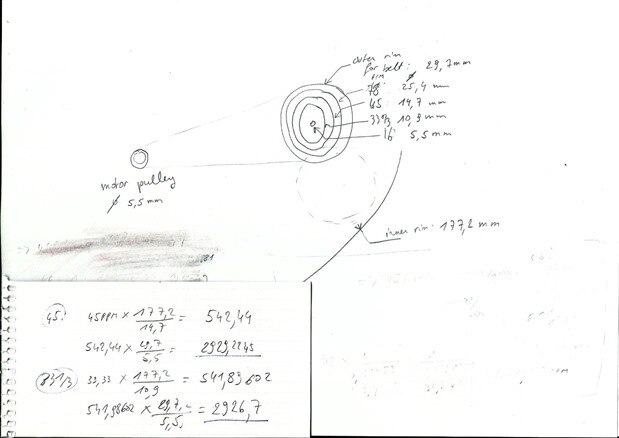 outer rim
for belt: ⌀ 29,7 mm
rim
78: 25,4 mm
45: 14,7 mm
33 1/3 10,9 mm
16 5,5 mm
motor pulley
⌀ 5,5 mm
inner rim: 177,2 mm
45: 45 RPM × 177,2 / 14,7 = 542,44
542,44 × 29,7 / 5,5 = 2929,2245
33 1/3 33,33 × 177,2 / 10,9 = 541,83602
541,98602 × 29,7 / 5,5 = 2926,7